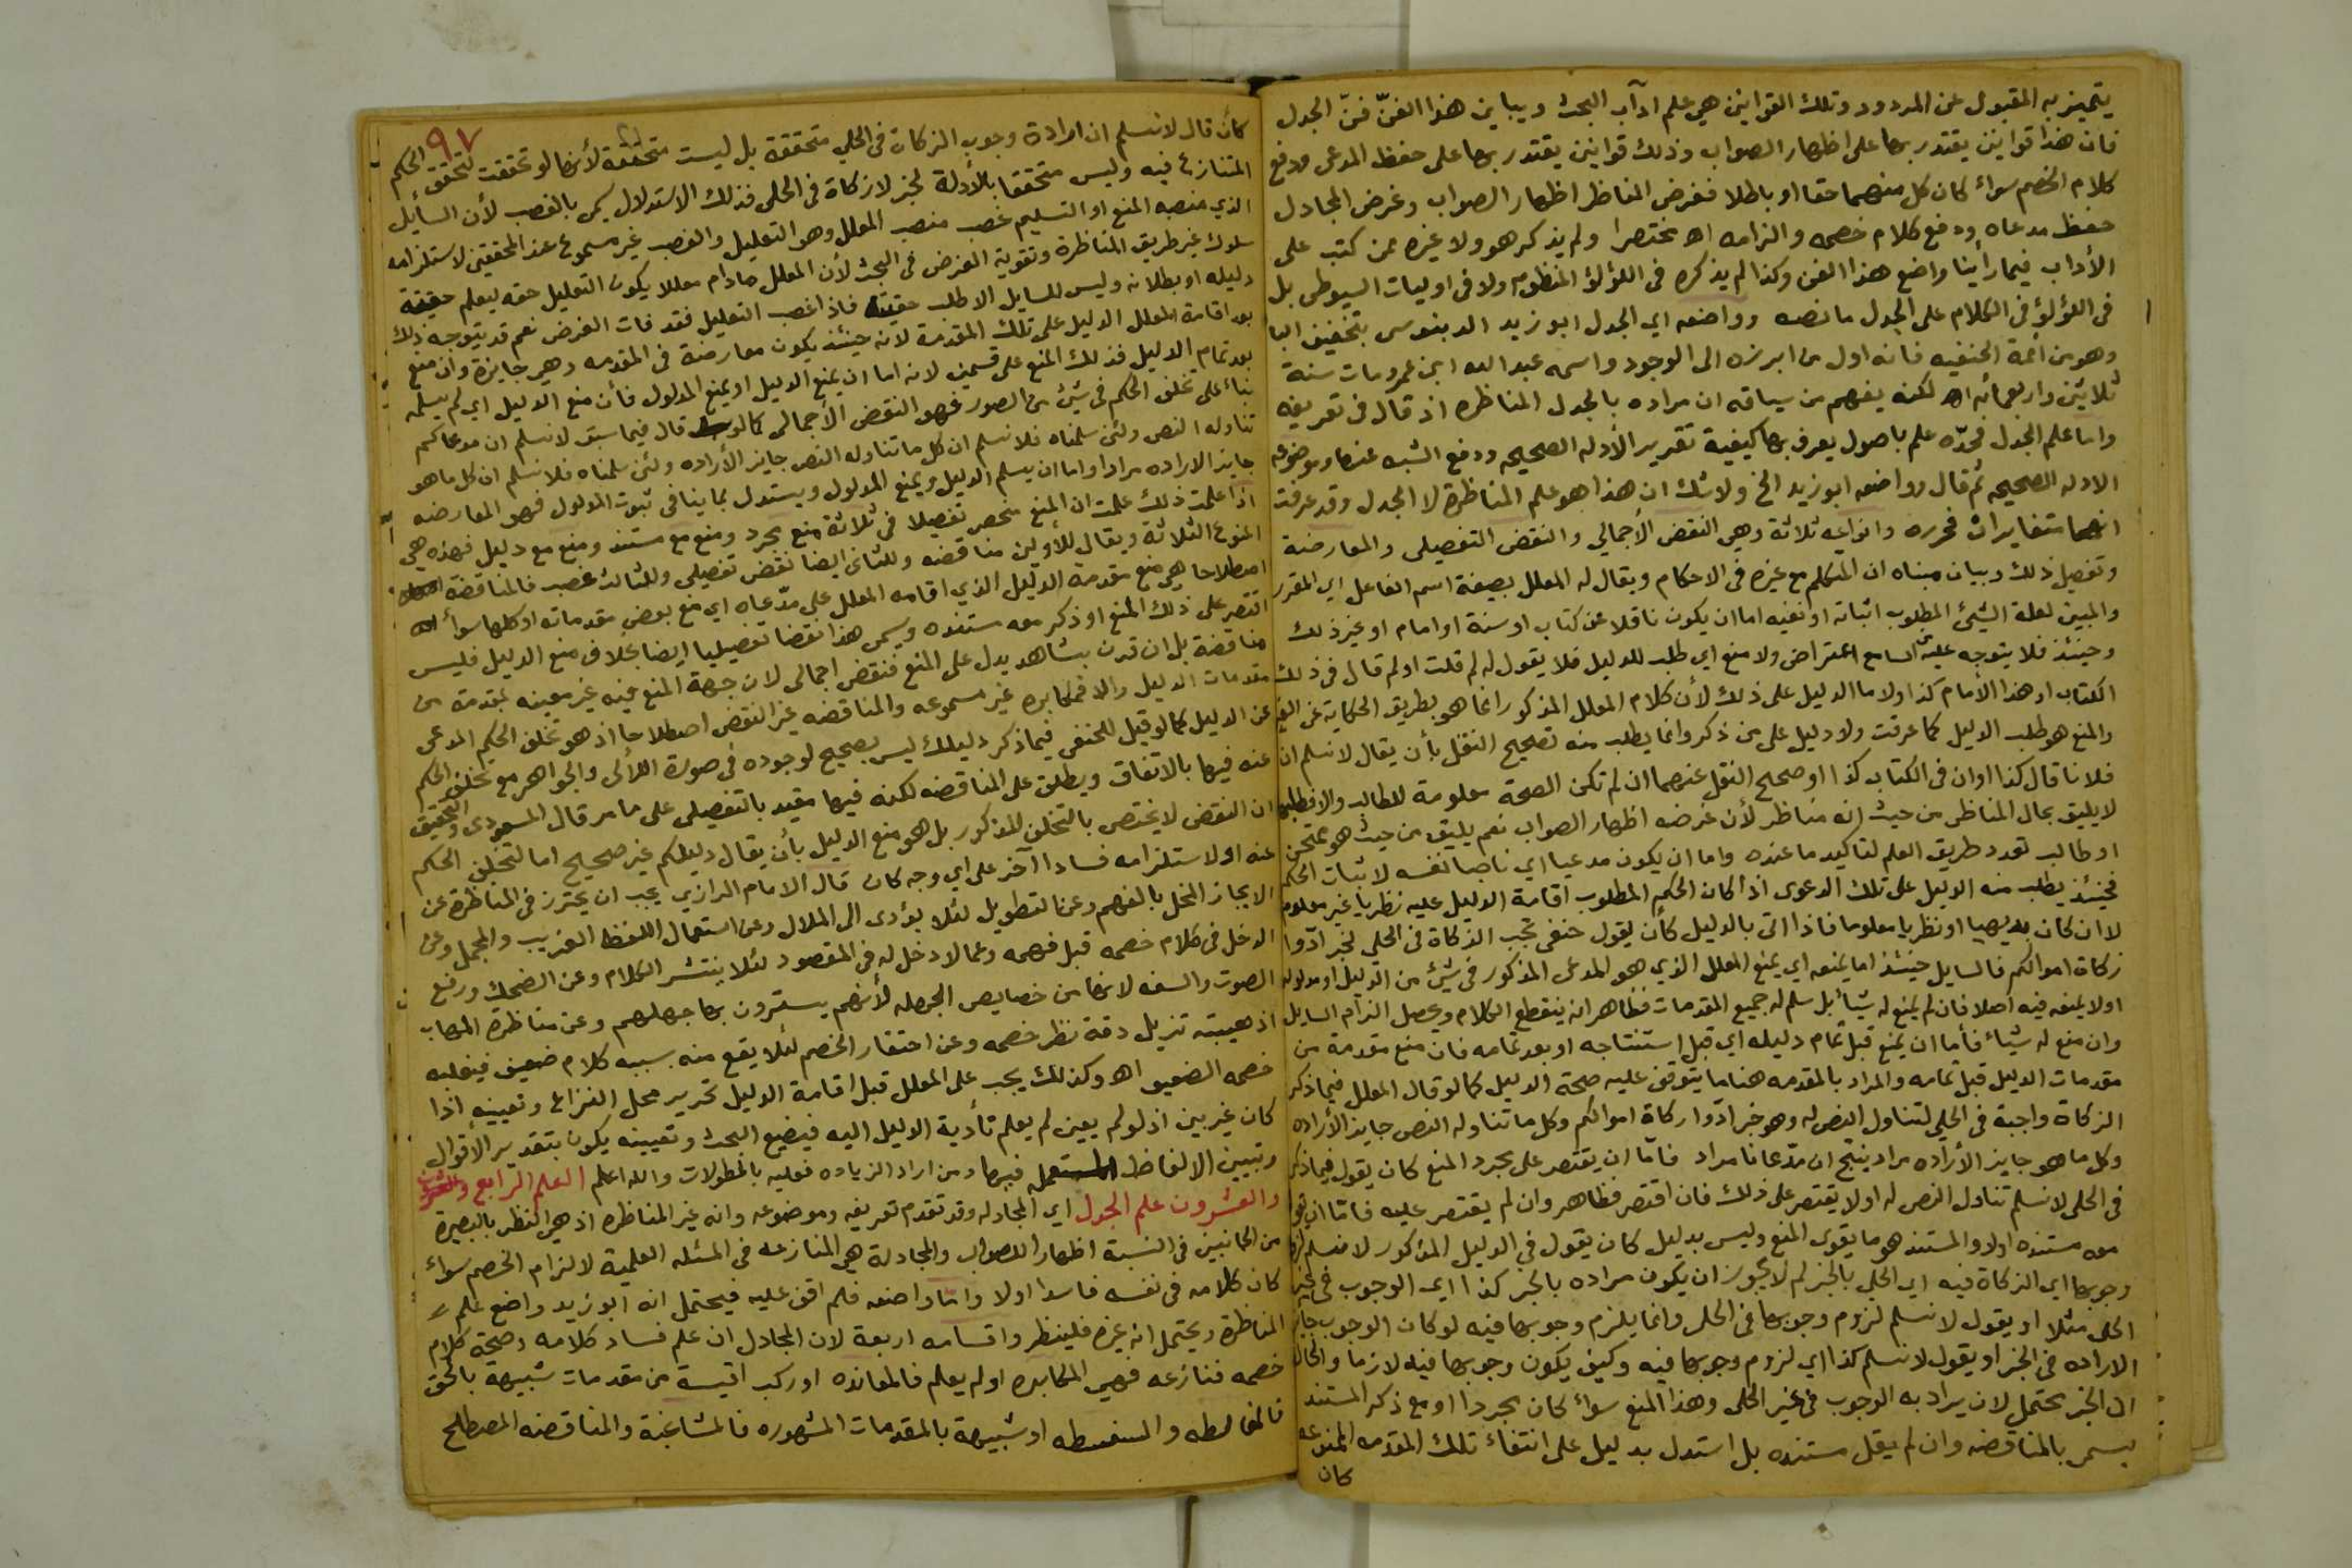 يتميز به المقبول عن المردود وتلك القوانين هي علم اداب البحث ويباين هذا الفنّ فنّ الجدل
فان هذا قوانين يقتدر بها على اظهار الصواب وذلك قوانين يقتدر بها على حفظ المدعى ودفع
كلام الخصم سواء كان كل منهما حقا او باطلا فغرض المناظر اظهار الصواب وغرض المجادل
حفظ مدعاه ودفع كلام خصمه والزامه اه مختصرا ولم يذكر هو ولا غيره ممن كتب على
الأداب فيما رأينا واضع هذا الفن وكذا لم يذكره في اللؤلؤ المنظوم ولا في اوليات السيوطي بل
في اللؤلؤ في الكلام على الجدل ما نصه وواضعه اي الجدل ابو زيد الدبوسي بتخفيف البا
وهو من أئمة الحنفيه فانه اول من ابرزه الى الوجود واسمه عبد الله ابن عمر ومات سنة
ثلاثين واربعمائه اه لكنه يفهم من سياقه ان مراده بالجدل المناظره اذ قال في تعريفه
واما علم الجدل فحدّه علم باصول يعرف بها كيفية تقرير الأدله الصحيحه ودفع الشبه عنها وموضوعه
الادله الصحيحه ثم قال وواضعه ابو زيد الخ ولا شك ان هذا هو علم المناظرة لا الجدل وقد عرفت
انهما متغايران فحرره وانواعه ثلاثة وهي النقض الأجمالي والنقض التفصيلي والمعارضة
وتفصيل ذلك وبيان مبناه ان المتكلم مع غيره في الاحكام ويقال له المعلل بصيغة اسم الفاعل اي المقرر
والمبين لعلة الشيئ المطلوب اثباته او نفيه اما ان يكون ناقلا عن كتاب او سنة او امام او غير ذلك
وحينئذ فلا يتوجه عليه من السامع اعتراض ولا منع اي طلب للدليل فلا يقول له لم قلت او لم قال في ذلك
الكتاب او هذا الأمام كذا اولا ما الدليل على ذلك لأن كلام المعلل المذكور انما هو بطريق الحكاية عن الغير
والمنع هو طلب الدليل كما عرفت ولا دليل على من ذكر وانما يطلب منه تصحيح النقل بأن يقال لا نسلم ان
فلانا قال كذا او ان في الكتاب كذا او صحح النقل عنهما ان لم تكن الصحة معلومة للطالب والا فطلبها
لا يليق بحال المناظر من حيث انه مناظر لأن غرضه اظهار الصواب نعم يليق من حيث هو ممتحن
او طالب تعدد طريق العلم لتأكيد ما عنده واما ان يكون مدعيا اي ناصبا نفسه لاثبات الحكم
فحينئذ يطلب منه الدليل على تلك الدعوى اذا كان الحكم المطلوب اقامة الدليل عليه نظريا غير معلوم
لا ان كان بديهيا او نظريا معلوما فاذا اتى بالدليل كأن يقول حنفي تجب الزكاة في الحلي لخبر ادّوا
زكاة اموالكم فالسايل حينئذ اما يمنعه اي يمنع المعلل الذي هو المدعى المذكور في شيئ من الدليل او مدلوله
اولا يمنعه فيه اصلا فان لم يمنع له شيأ بل سلم له جميع المقدمات فظاهر انه ينقطع الكلام ويحصل الزام السايل
وان منع له شيئا فأما ان يمنع قبل تمام دليله اي قبل استنتاجه او بعد تمامه فان منع مقدمة من
مقدمات الدليل قبل تمامه والمراد بالمقدمه هنا ما يتوقف عليه صحة الدليل كما لو قال المعلل فيما ذكر
الزكاة واجبة في الحلي لتناول النص له وهو خبر ادّوا زكاة اموالكم وكل ما تناوله النص جايز الأراده
وكل ما هو جايز الأراده مراد ينتج ان مدّعانا مراد فأمّا ان يقتصر على مجرد المنع كان يقول فيما ذكر
في الحلي لا نسلم تناول النص له اولا يقتصر على ذلك فان اقتصر فظاهر وان لم يقتصر عليه فأمّا ان يقول
معه مستنده اولا والمستند هو ما يقوى المنع وليس بدليل كان يقول في الدليل المذكور لا نسلم لزوم
وجوبها اي الزكاة فيه اي الحلي بالخبر لم لا يجوز ان يكون مراده بالخبر كذا اي الوجوب في غير
الحلي مثلا او يقول لا نسلم لزوم وجوبها في الحلي وانما يلزم وجوبها فيه لو كان الوجوب جايز
الاراده في الخبر او يقول لا نسلم كذا اي لزوم وجوبها فيه وكيف يكون وجوبها فيه لازما والحال
ان الخبر محتمل لان يراد به الوجوب في غير الحلي وهذا المنع سواء كان مجردا او مع ذكر المستند
يسمى بالمناقضه وان لم يقل مستنده بل استدل بدليل على انتفاء تلك المقدمه الممنوعه
كان
٩٧
كأن قال لا نسلم ان ارادة وجوب الزكات في الحلي متحققة بل ليست متحققة لأنها لو تحققت لتحقق الحكم
المتنازع فيه وليس متحققا بالأدلة لخبر لا زكاة في الحلي فذلك الاستدلال يسمى بالغصب لأن السائل
الذي منصبه المنع او التسليم غصب منصب المعلل وهو التعليل والغصب غير مسموع عند المحققين لاستلزامه
سلوك غير طريق المناظرة وتقوية الغرض في البحث لأن المعلل مادام معللا يكون التعليل حقه ليعلم حقيقة
دليله او بطلانه وليس للسايل الا طلب حقيقته فاذا غصب التعليل فقد فات الغرض نعم قد يتوجه ذلك
بعد اقامة المعلل الدليل على تلك المقدمة لانه حينئذ يكون معارضة في المقدمه وهي جايزة وان منع
بعد تمام الدليل فذلك المنع على قسمين لانه اما ان يمنع الدليل او يمنع المدلول فأن منع الدليل اي لم يسلمه
بناء على تخلف الحكم في شيئ من الصور فهو النقض الأجمالي كما لو قال فيما سبق لا نسلم ان مدعاكم
تناوله النص ولئن سلمناه فلا نسلم ان كل ما تناوله النص جايز الأراده ولئن سلمناه فلا نسلم ان كل ما هو
جايز الاراده مرادا واما ان يسلم الدليل ويمنع المدلول ويستدل بما ينافي ثبوت المدلول فهو المعارضه
اذا علمت ذلك علمت ان المنع منحصر تفصيلا في ثلاثة منع مجرد ومنع مع مستند ومنع مع دليل فهذه هي
المنوع الثلاثة ويقال للأولين مناقضه وللثاني ايضا نقض تفصيلي وللثالث غصب فالمناقضة
اصطلاحا هي منع مقدمة الدليل الذي اقامه المعلل على مدّعاه اي منع بعض مقدماته او كلها سواء
اقتصر على ذلك المنع او ذكر معه مستنده ويسمى هذا نقضا تفصيليا ايضا بخلاف منع الدليل فليس
مناقضة بل ان قرن بشاهد يدل على المنع فنقض اجمالي لان جهة المنع فيه غير معينه لمقدمة من
مقدمات الدليل والا فمكابره غير مسموعه والمناقضه غير النقض اصطلاحا اذ هو تخلف الحكم المدعى
عن الدليل كما لو قيل للحنفي فيما ذكر دليلك ليس بصحيح لوجوده في صورة اللآلى والجواهر مع تخلف الحكم
عنه فيها بالاتفاق ويطلق على المناقضه لكنه فيها مقيد بالتفصيلي على ما مر قال المسعودى والتحقيق
ان النقض لا يختص بالتخلف المذكور بل هو منع الدليل بأن يقال دليلكم غير صحيح اما لتخلف الحكم
عنه او لاستلزامه فسادا آخر على اي وجه كان قال الامام الرازي يجب ان يحترز في المناظرة عن
الايجاز المخل بالفهم وعن التطويل لئلا يؤدى الى الملال وعن استعمال اللفظ الغريب والمجمل وعن
الدخل في كلام خصمه قبل فهمه وعما لا دخل له في المقصود لئلا ينتشر الكلام وعن الضحك ورفع
الصوت والسفه لانها من خصايص الجهله لأنهم يسترون بها جهلهم وعن مناظرة المهاب
اذ هيبته تزيل دقة نظر خصمه وعن احتقار الخصم لئلا يقع منه بسببه كلام ضعيف فيغلبه
خصمه الضعيف اه وكذلك يجب على المعلل قبل اقامة الدليل تحرير محل النزاع وتعيينه اذا
كان غير بين اذ لو لم يعين لم يعلم تأدية الدليل اليه فيضيع البحث وتعيينه يكون بتقدير الأقوال
وتبيين الالفاظ المستعمله فيها ومن اراد الزياده فعليه بالمطولات والله اعلم العلم الرابع
والعشرون علم الجدل اي المجادله وقد تقدم تعريفه وموضوعه وانه غير المناظره اذ هي النظر بالبصيرة
من الجانبين في النسبة اظهارا للصواب والمجادلة هي المنازعه في المسئله العلمية لالزام الخصم سواء
كان كلامه في نفسه فاسدا اولا وامّا واضعه فلم اقف عليه فيحتمل انه ابو زيد واضع علم
المناظرة ويحتمل انه غيره فلينظر واقسامه اربعة لان المجادل ان علم فساد كلامه وصحة كلام
خصمه فنازعه فهي المكابره او لم يعلم فالمعانده او ركب اقيسة من مقدمات شبيهة بالحق
فالمغالطه والسفسطه او شبيهة بالمقدمات المشهوره فالمشاغبة والمناقضه المصطلح